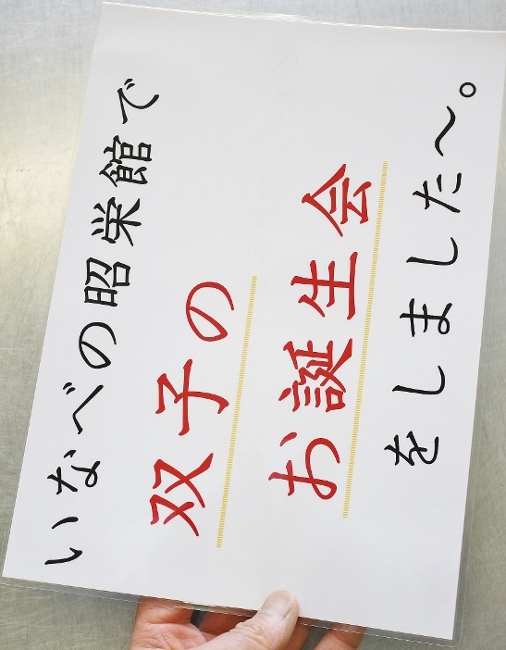 いなべの昭栄館で
双子の
お誕生会
をしました〜。